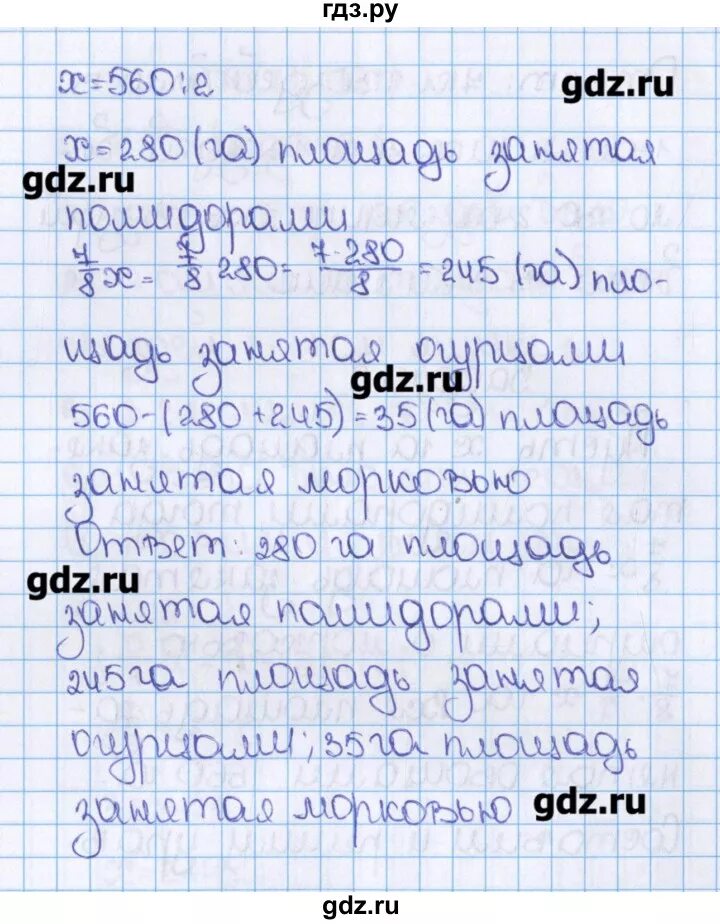 гдз.ру
x=560:2
gdz.ru
x=280 (га) площадь занятая
gdz.ru
помидорами
7/8 x = 7/8 280 = 7·280/8 = 245 (га) пло-
щадь занятая огурцами
gdz.ru
560-(280+245)=35 (га) площадь
занятая морковью
Ответ: 280 га площадь
gdz.ru
занятая помидорами;
245 га площадь занятая
огурцами; 35 га площадь
занятая морковью
gdz.ru
gdz.ru